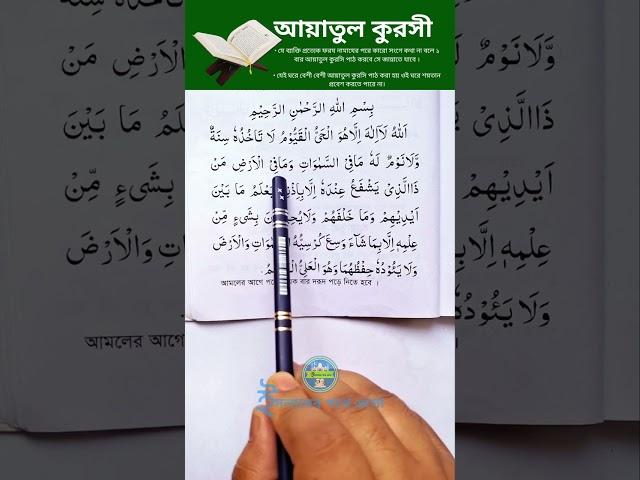 আয়াতুল কুরসী
• যে ব্যাক্তি প্রত্যেক ফরয নামাযের পরে কারো সংগে কথা না বলে ১
বার আয়াতুল কুরসি পাঠ করবে সে জান্নাতে যাবে ।
• যেই ঘরে বেশী বেশী আয়াতুল কুরসি পাঠ করা হয় ওই ঘরে শয়তান
প্রবেশ করতে পারে না।
بِسْمِ اللهِ الرَّحْمٰنِ الرَّحِيْمِ
اَللهُ لَآاِلٰهَ اِلَّاهُوَ الْحَىُّ الْقَيُّوْمُ لَا تَاْخُذُهٗ سِنَةٌ
وَّلَانَوْمٌ لَهٗ مَافِى السَّمٰوَاتِ وَمَافِى الْاَرْضِ مَنْ
ذَاالَّذِىْ يَشْفَعُ عِنْدَهٗ اِلَّابِاِذْنِهٖ يَعْلَمُ مَا بَيْنَ
اَيْدِيْهِمْ وَمَا خَلْفَهُمْ وَلَا بِشَىْءٍ مِّنْ
عِلْمِهٖ اِلَّابِمَا شَآءَ وَسِعَ كُرْسِيُّهُ وَالْاَرْضَ
وَلَا يَئُوْدُهٗ حِفْظُهُمَا وَهُوَ الْعَلِىُّ
আমলের আগে বার দরূদ পড়ে নিতে হবে ।